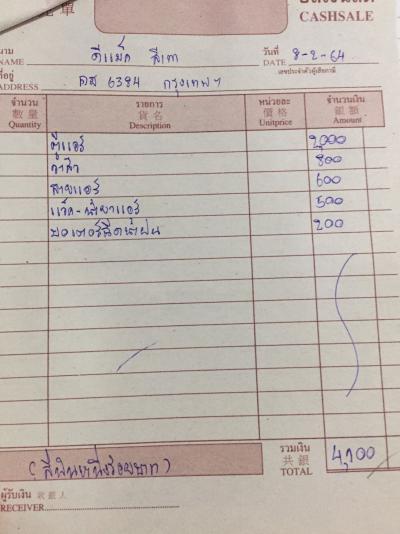 單
CASHSALE
นาม ดีแม็ค สีเทา วันที่ 8-2-64
NAME DATE
ที่อยู่ 6384 กรุงเทพฯ เลขประจำตัวผู้เสียภาษี
ADDRESS
จำนวน รายการ หน่วยละ จำนวนเงิน
數量 貨名 價格 銀額
Quantity Description Unitprice Amount
ตู้แอร์ 2,000
วาล์ว 800
สายแอร์ 600
แว็ค-น้ำยาแอร์ 500
มอเตอร์ฉีดน้ำฝน 200
(สี่พันหนึ่งร้อยบาท) รวมเงิน 4,100
共銀
TOTAL
ผู้รับเงิน 收銀人
RECEIVER